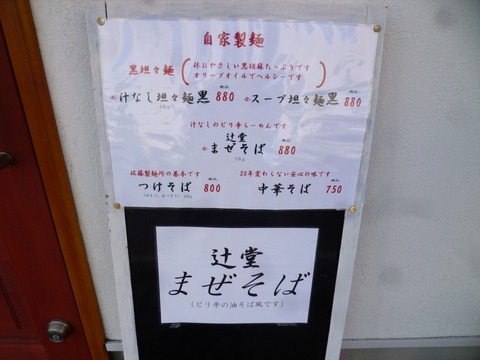 自家製麺
黒坦々麺
体にやさしい黒胡麻たっぷりです
オリーブオイルでヘルシーです
汁なし坦々麺黒 税込 880
スープ坦々麺黒 税込 880
汁なしのピリ辛らーめんです
辻堂
まぜそば 税込 880
佐藤製麺所の基本です
つけそば 税込 800
20年変わらない安心の味です
中華そば 税込 750
辻堂
まぜそば
(ピリ辛の油そば風です)